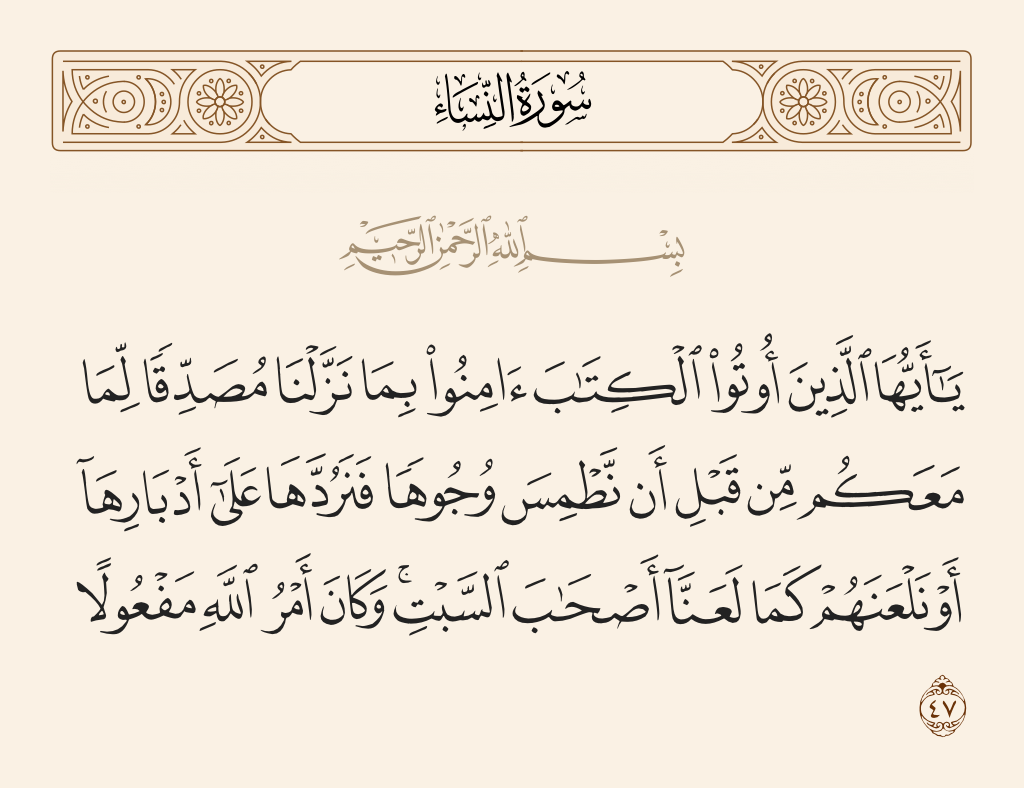 سُورَةُ النِّسَاءِ
بِسْمِ ٱللَّهِ ٱلرَّحْمَٰنِ ٱلرَّحِيمِ
يَٰٓأَيُّهَا ٱلَّذِينَ أُوتُوا۟ ٱلْكِتَٰبَ ءَامِنُوا۟ بِمَا نَزَّلْنَا مُصَدِّقًا لِّمَا
مَعَكُم مِّن قَبْلِ أَن نَّطْمِسَ وُجُوهًا فَنَرُدَّهَا عَلَىٰٓ أَدْبَارِهَآ
أَوْ نَلْعَنَهُمْ كَمَا لَعَنَّآ أَصْحَٰبَ ٱلسَّبْتِ ۚ وَكَانَ أَمْرُ ٱللَّهِ مَفْعُولًا
٤٧